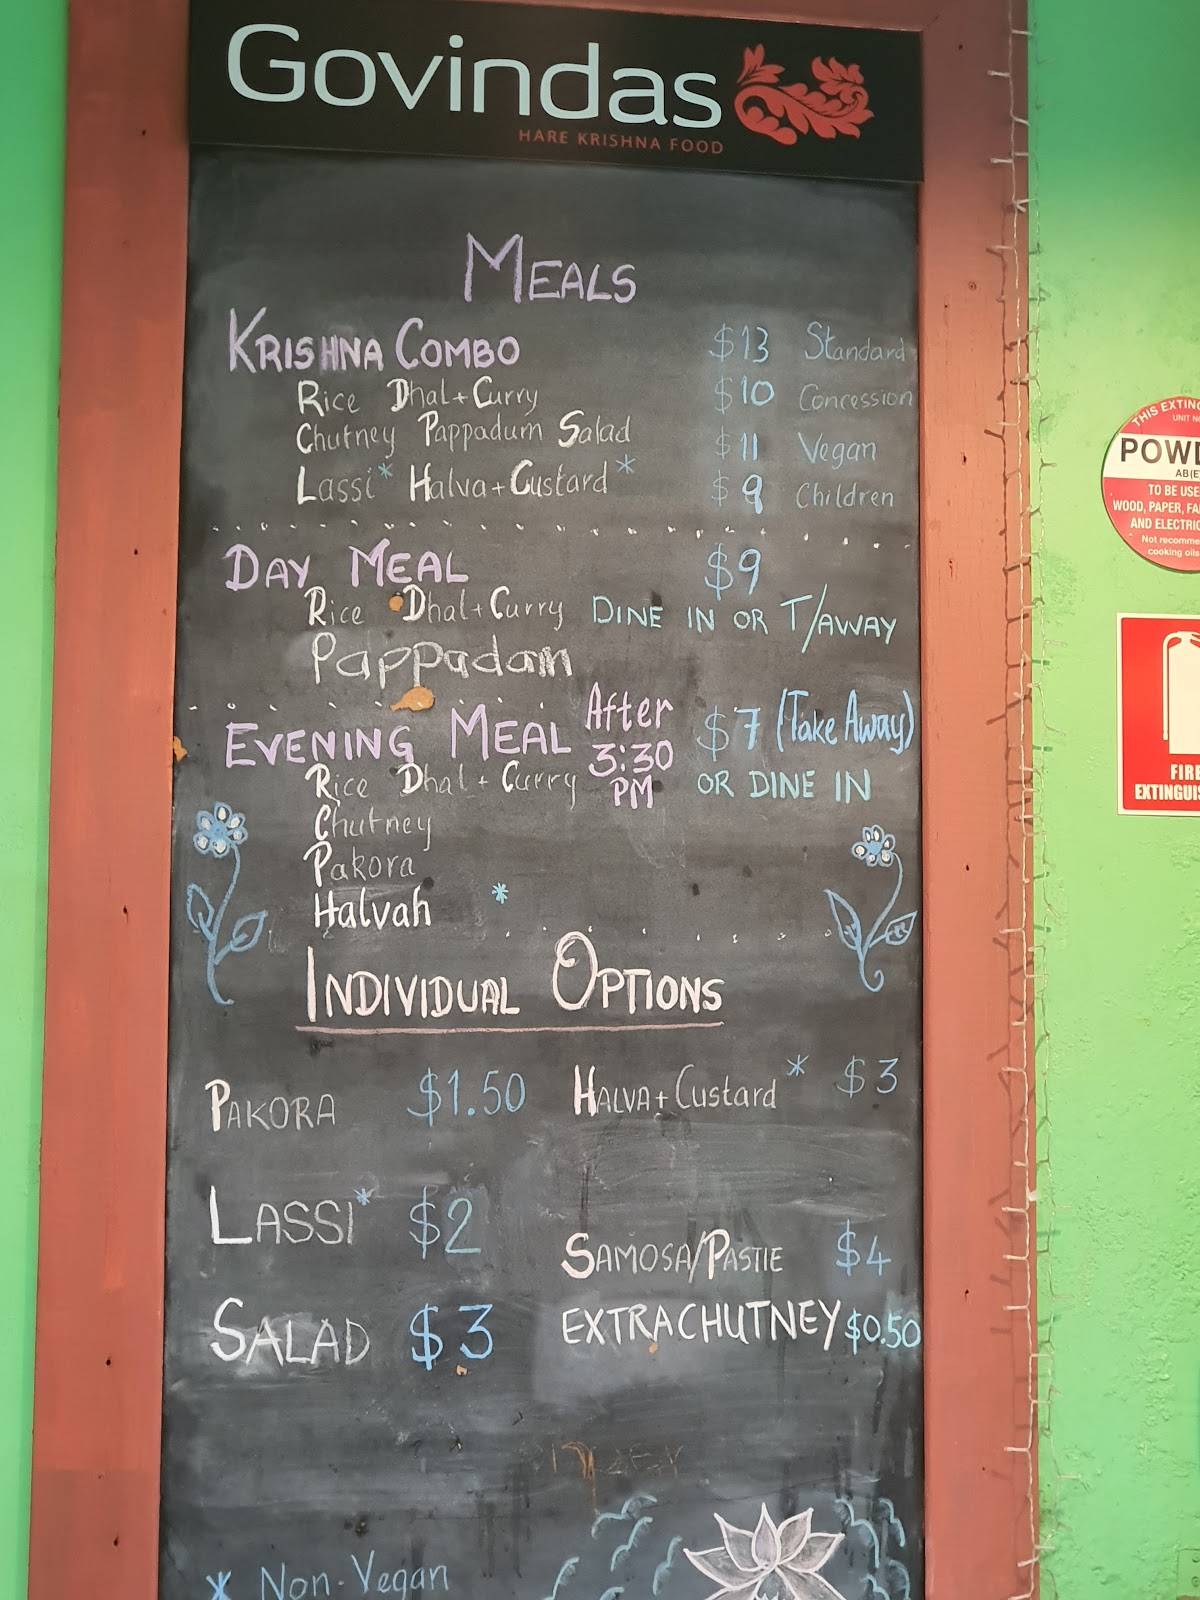 Govindas
HARE KRISHNA FOOD
MEALS
KRISHNA COMBO $13 Standard
Rice Dhal + Curry $10 Concession
Chutney Pappadum Salad $11 Vegan
Lassi* Halva + Custard* $9 Children
DAY MEAL $9
Rice Dhal + Curry DINE IN OR T/AWAY
Pappadam
EVENING MEAL After 3:30 PM $7 (Take Away)
Rice Dhal + Curry OR DINE IN
Chutney
Pakora
Halvah *
INDIVIDUAL OPTIONS
PAKORA $1.50 HALVA + Custard* $3
LASSI* $2
SAMOSA/PASTIE $4
SALAD $3 EXTRA CHUTNEY $0.50
* Non-Vegan
UNIT
TO BE USE
WOOD, PAPER,
AND
Not
cooking oils
FIRE